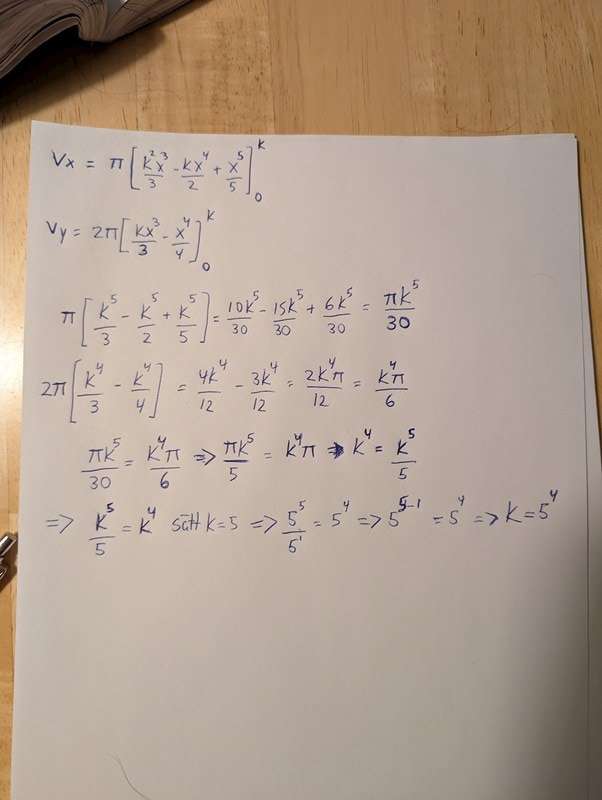 Vx = π[k²x³/3 - kx⁴/2 + x⁵/5]₀ᵏ
Vy = 2π[kx³/3 - x⁴/4]₀ᵏ
π[k⁵/3 - k⁵/2 + k⁵/5] = 10k⁵/30 - 15k⁵/30 + 6k⁵/30 = πk⁵/30
2π[k⁴/3 - k⁴/4] = 4k⁴/12 - 3k⁴/12 = 2k⁴π/12 = k⁴π/6
πk⁵/30 = k⁴π/6 => πk⁵/5 = k⁴π => k⁴ = k⁵/5
=> k⁵/5 = k⁴ sätt k=5 => 5⁵/5¹ = 5⁴ => 5⁵⁻¹ = 5⁴ => k = 5⁴